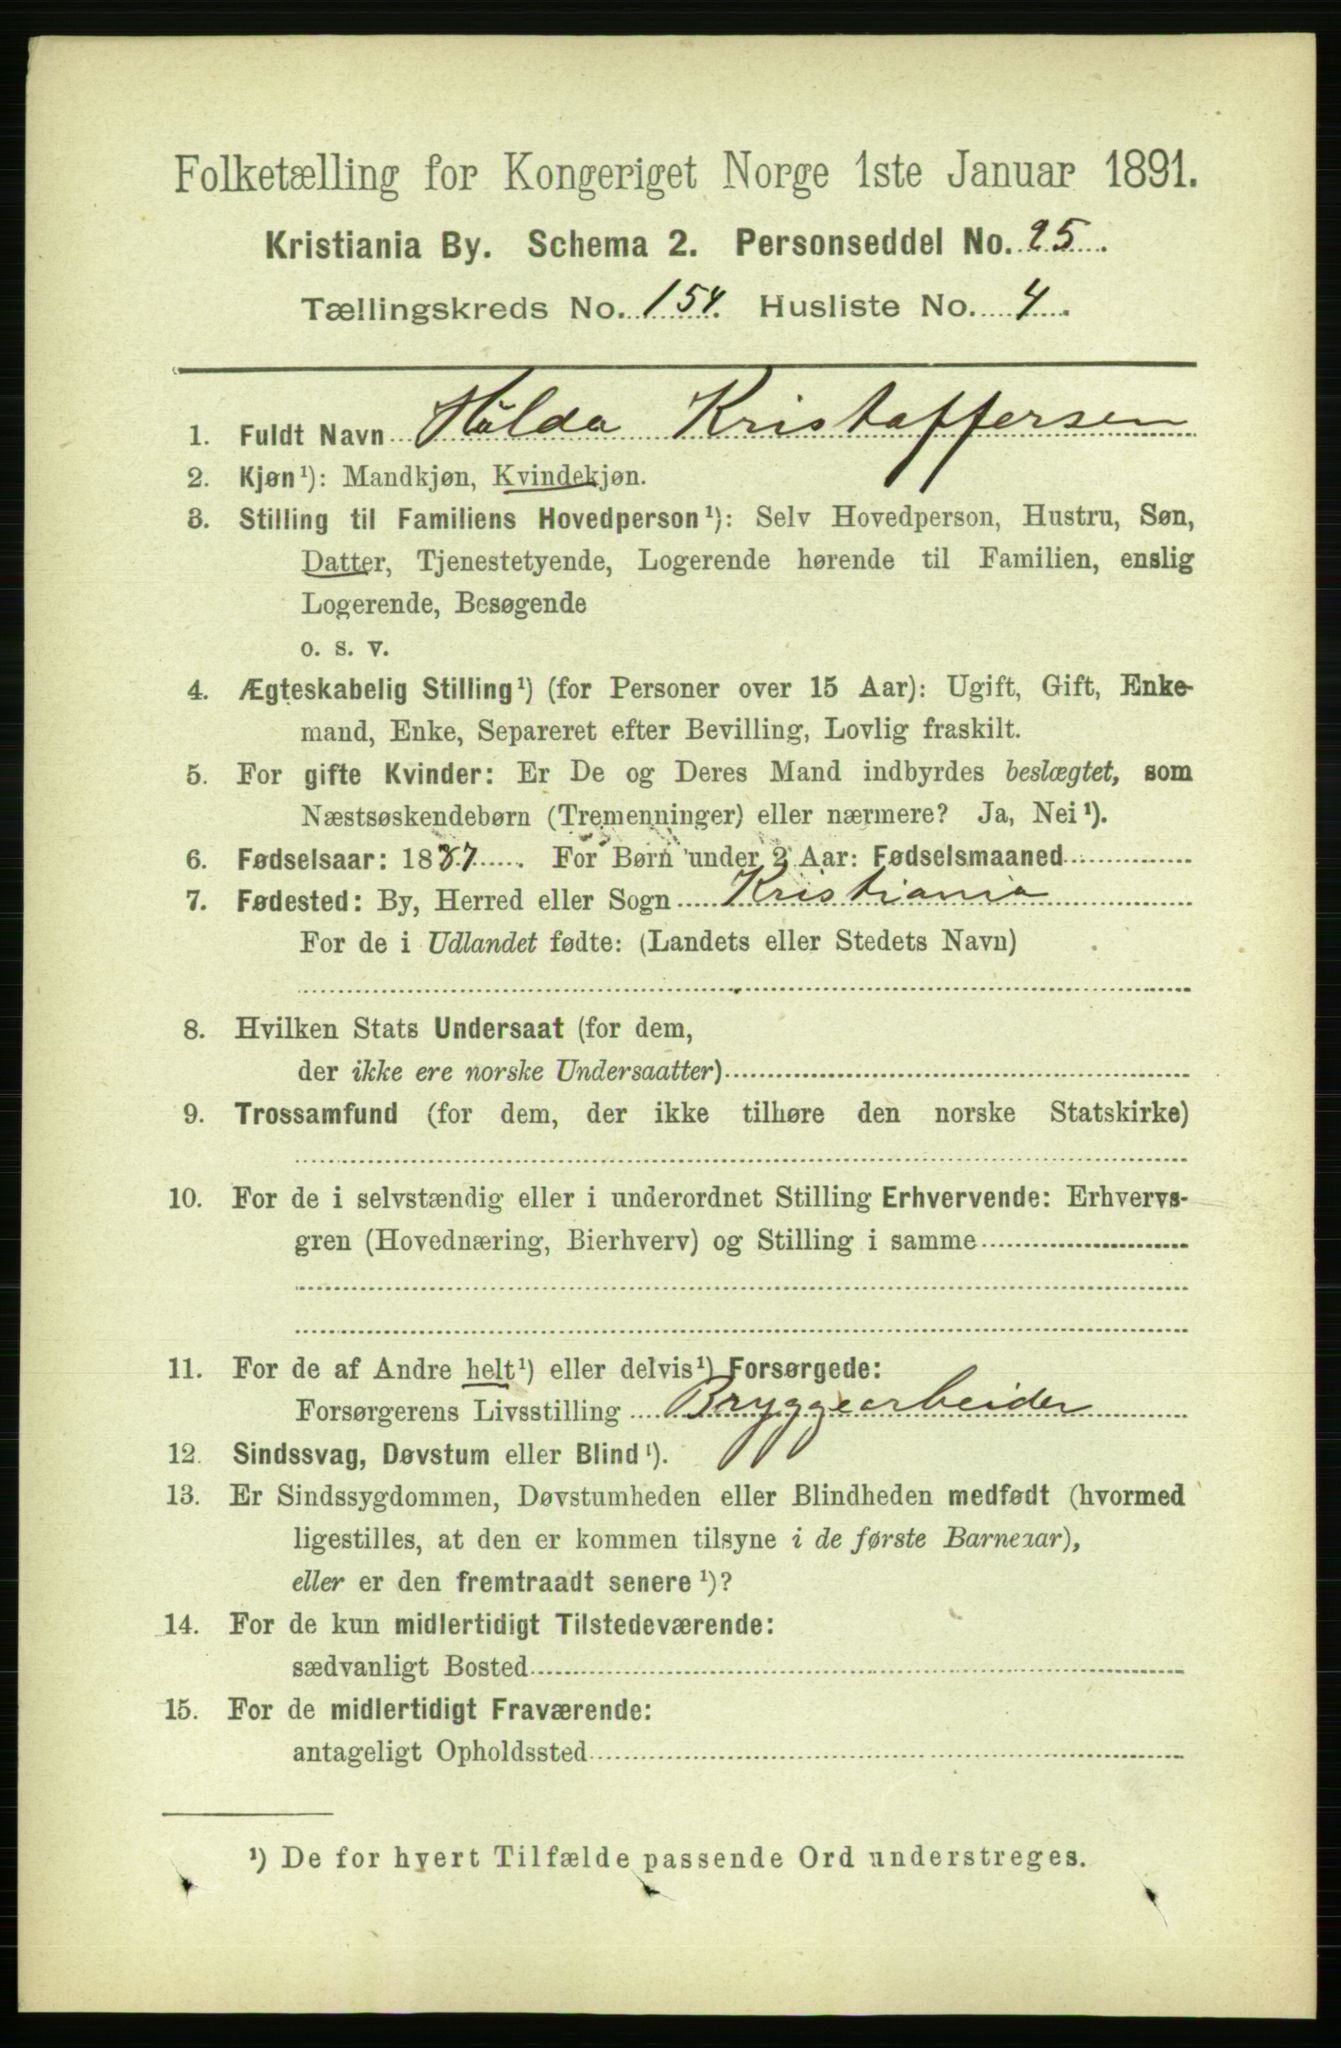 Folketælling for Kongeriget Norge 1ste Januar 1891.
Kristiania By. Schema 2. Personseddel No. 25.
Tællingskreds No. 154. Husliste No. 4.
1. Fuldt Navn Hulda Kristoffersen
2. Kjøn¹): Mandkjøn, Kvindekjøn.
3. Stilling til Familiens Hovedperson¹): Selv Hovedperson, Hustru, Søn,
Datter, Tjenestetyende, Logerende hørende til Familien, enslig
Logerende, Besøgende
o. s. v.
4. Ægteskabelig Stilling¹) (for Personer over 15 Aar): Ugift, Gift, Enke-
mand, Enke, Separeret efter Bevilling, Lovlig fraskilt.
5. For gifte Kvinder: Er De og Deres Mand indbyrdes beslægtet, som
Næstsøskendebørn (Tremenninger) eller nærmere? Ja, Nei¹).
6. Fødselsaar: 1887. For Børn under 2 Aar: Fødselsmaaned
7. Fødested: By, Herred eller Sogn Kristiania
For de i Udlandet fødte: (Landets eller Stedets Navn)
8. Hvilken Stats Undersaat (for dem,
der ikke ere norske Undersaatter)
9. Trossamfund (for dem, der ikke tilhøre den norske Statskirke)
10. For de i selvstændig eller i underordnet Stilling Erhvervende: Erhvervs-
gren (Hovednæring, Bierhverv) og Stilling i samme
11. For de af Andre helt¹) eller delvis¹) Forsørgede:
Forsørgerens Livsstilling Bryggearbeider
12. Sindssvag, Døvstum eller Blind¹).
13. Er Sindssygdommen, Døvstumheden eller Blindheden medfødt (hvormed
ligestilles, at den er kommen tilsyne i de første Barneaar),
eller er den fremtraadt senere¹)?
14. For de kun midlertidigt Tilstedeværende:
sædvanligt Bosted
15. For de midlertidigt Fraværende:
antageligt Opholdssted
¹) De for hvert Tilfælde passende Ord understreges.